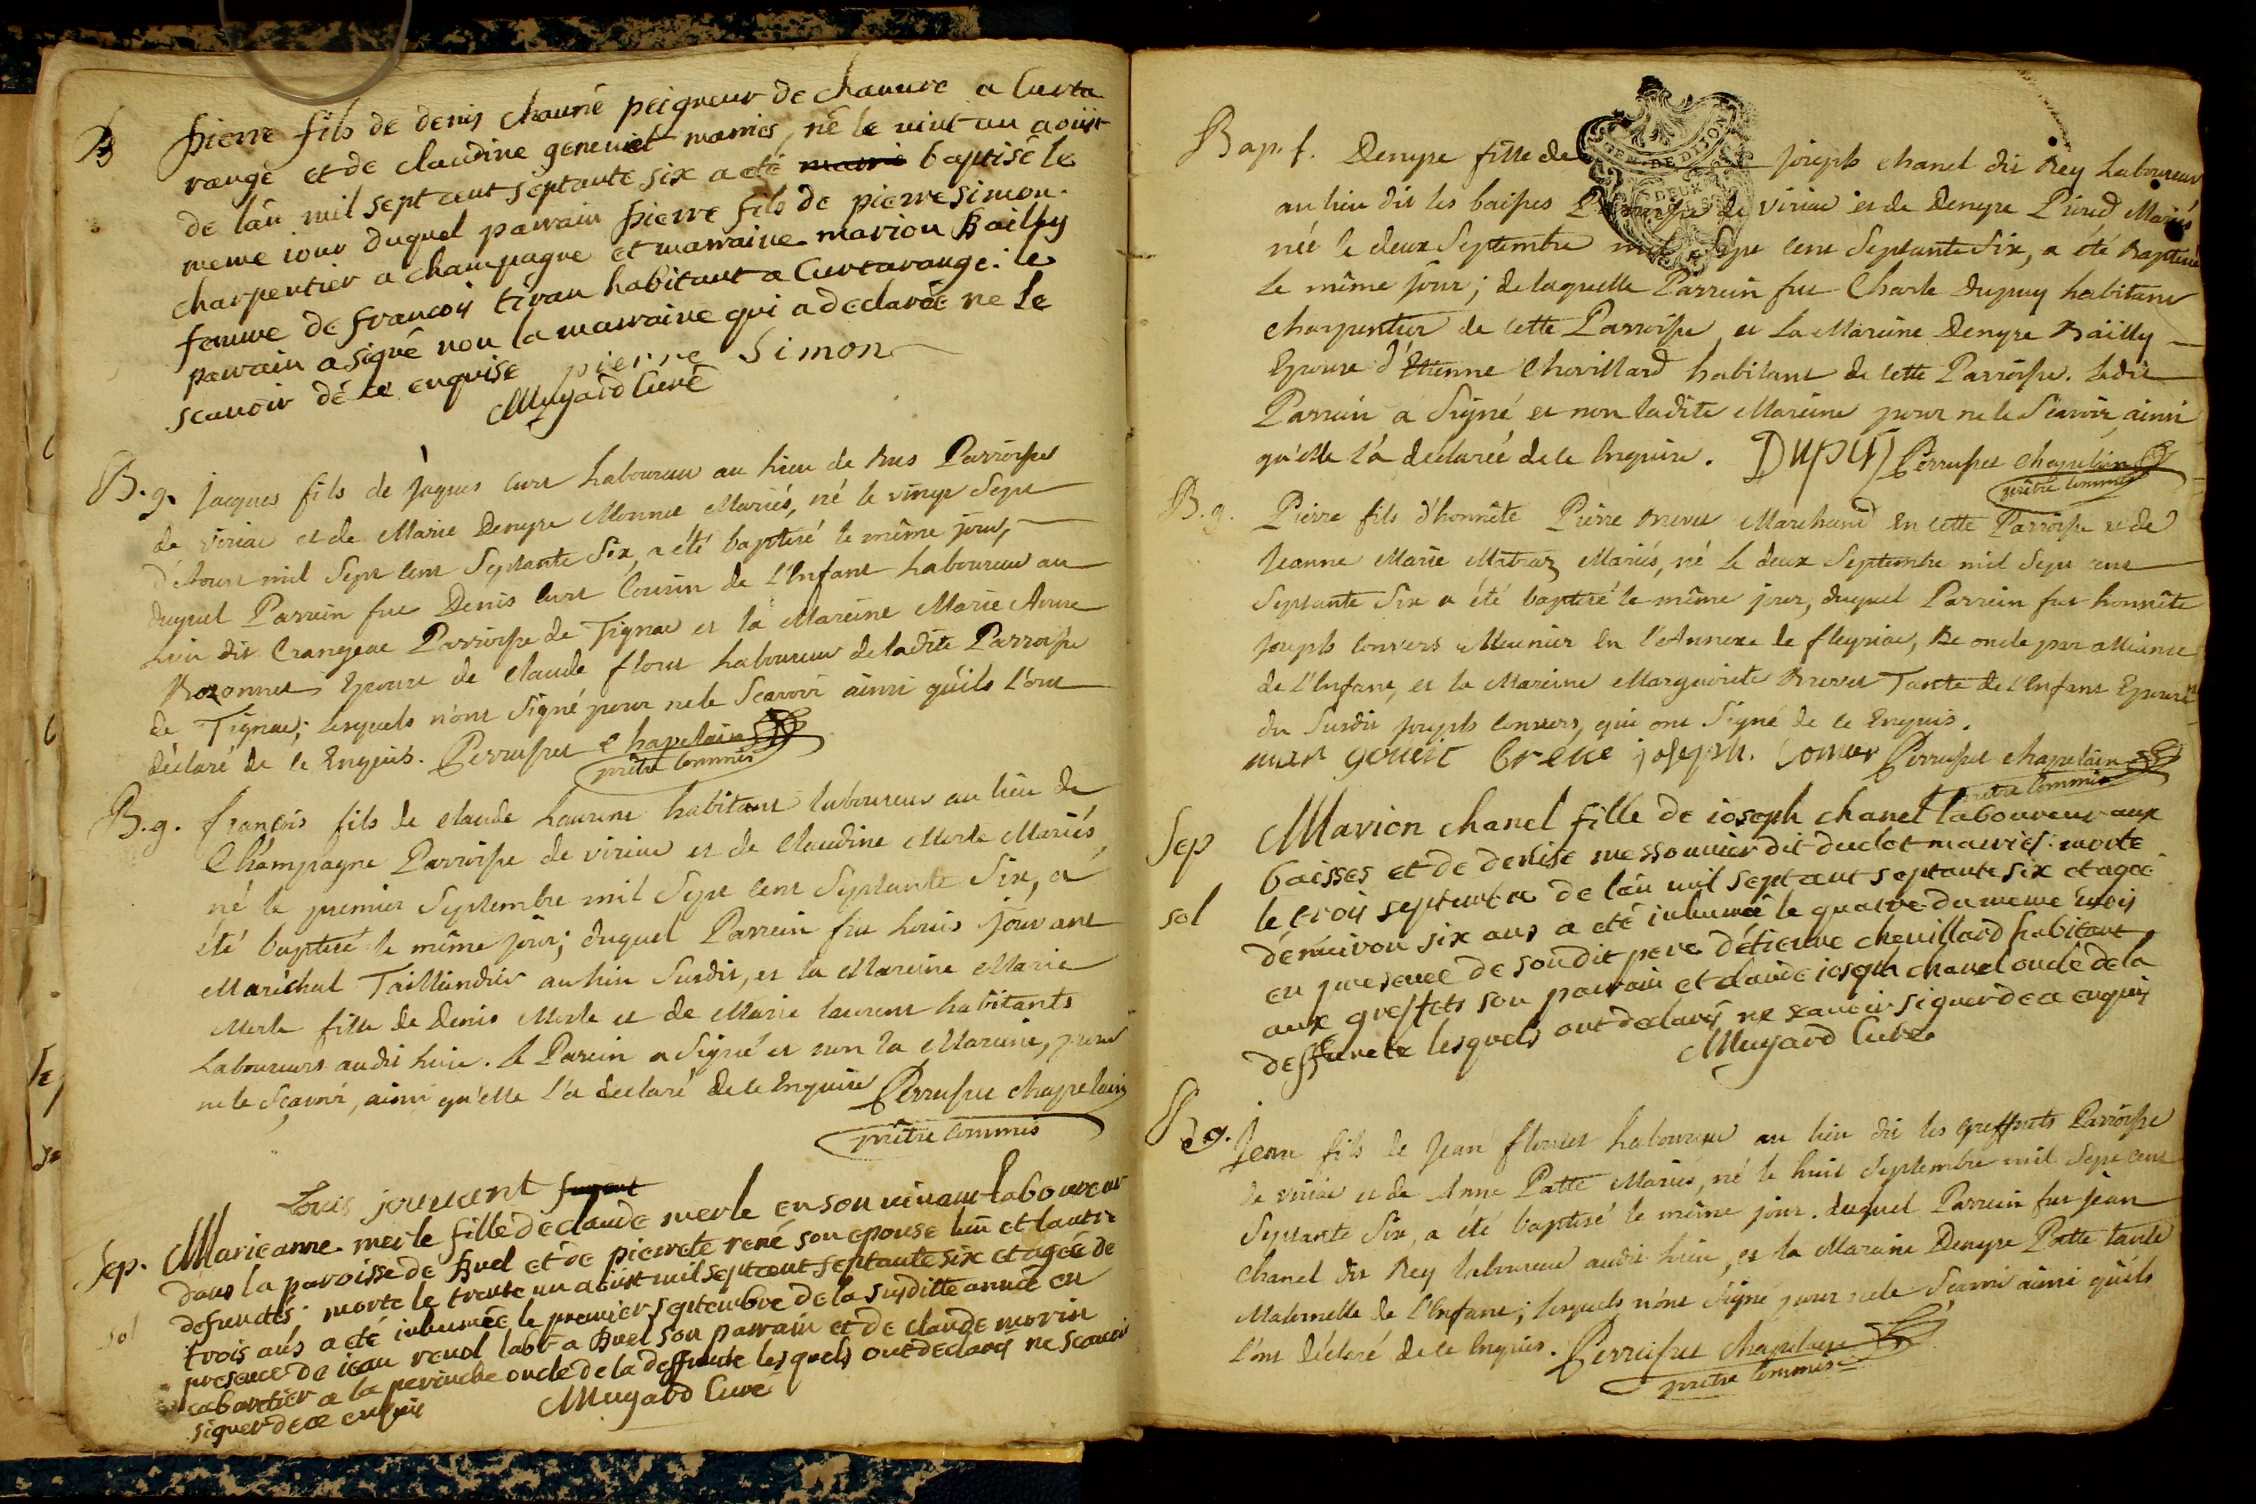 B pierre fils de denis chaurié peigneur de chanvre a Curta
range et de claudine geneviet mariés, né le vint un aoûst
de lân mil sept cent septante six a eté marié baptisé le
meme iour duquel parrain pierre fils de pierre simon
charpentier a champagne et marraine marion Bailly
femme de francois tiran habitant a Curtarange. le
parrain a signé non la marraine qui a declarée ne le
scauoir dé ce enquise pierre Simon
Mugard Curé
B. g. jacques fils de jaques curt Laboureur au lieu de Parroisse
de viriac et de Marie Denyse Monnet Mariés, né le vingt Sept
d'Aoust mil Sept Cent Septante Six, a été baptisé le même jour,
duquel Parrein fut Denis curt Cousin de L'Enfant Laboureur au
Lieu dit Crangeac Parroisse de Tignac et la Mareine Marie
Epouse de Claude flour Laboureur de ladite Parroisse
de Tignac; lesquels n'ont Signé pour ne le Scavoir ainsi qu'ils l'ont
déclaré de ce Enquis. Perruset Chapelain
prêtre Commis
B. g. françois fils de Claude Laurent habitant laboureur au lieu de
Champagne Parroisse de viriac et de Claudine Merle Mariés,
né le premier Septembre mil Sept Cent Septante Six, a
été baptisé le même jour; duquel Parrein fut Louis jouvant
Maréchal Taillandier au lieu Susdit, et la Mareine Marie
Merle fille de Denis Merle et de Marie laurent habitants
Laboureurs audit lieu. le Parein a Signé et non la Mareine, pour
ne le Sçavoir, ainsi qu'elle l'a declaré de ce Enquise Perruset Chapelain
prêtre Commis
Louis jouuant
Sep. Marieanne merle fille de claude merle en son viuant laboureur
dans la paroisse de Buel et de pierrete rené son epouse lun et lautre
sol defuncts; morte le trente un aoust mil sept cent septante six et agée de
trois ans a eté inhumée le premier septembre de la susditte année en
presence de iean renol labr a Buel son parrain et de claude morin
cabaretier a la peruuche oncle de la deffunte lesquels ont declaréz ne scauoir
signer de ce enquis Mugard Curé
Bap. f. Denyse fille de joseph chanel dit Rey Laboureur
au lieu dit les baisses Parroisse de viriac et de Denyse Mariés
née le deux Septembre mil Sept Cent Septante Six, a été Baptisée
le même jour; de laquelle Parrein fut Charle Dupuy habitant
charpentier de cette Parroisse, et La Mareine Denyse Bailly
Epouse d'Etienne Chevillard habitant de cette Parroisse. ledit
Parrein a Signé, et non ladite Mareine pour ne le Scavoir ainsi
qu'elle l'a declarée de ce Enquise. Dupuy Perruset Chapelain
prêtre Commis
B. g. Pierre fils d'honnête Pierre brevet Marchand En cette Parroisse et de
Jeanne Marie Matraz Mariés, né le deux Septembre mil Sept cent
Septante Six a été baptisé le même jour, duquel Parrein fut honnête
joseph convers Meunier En l'Annexe de fleyriac, oncle par alliance
de L'Enfant, et la Mareine Marguerite Brevet Tante de L'Enfant Epouse
du Susdit joseph Convers, qui ont Signé de ce Enquis.
margerit breve joseph. Conver Perruset Chapelain
prêtre Commis
Sep Marion chanel fille de ioseph chanel laboureur aux
baisses et de denise messonnier dit duclot mariés: morte
sol le trois septembre de lân mil sept cent septante six et agée
dénuiron six ans a eté inhumée le quatre du meme mois
en presence de son dit pere d'étienne cheuillard habitant
aux greffets son parrain et claude ioseph chanel oncle de la
deffuncte lesquels ont declarés ne scauoir signer de ce enquis
Mugard Curé
B. g. Jean fils de Jean flouret Laboureur au lieu dit les greffets Parroisse
de viriac et de Anne Patte Mariés, né le huit Septembre mil Sept cent
Septante Six, a été baptisé le même jour. duquel Parrein fut jean
chanel dit Rey laboureur audit lieu, et la Mareine Denyse Patte tante
Maternelle de L'Enfant; lesquels n'ont Signé pour ne le Scavoir ainsi qu'ils
l'ont déclaré de ce Enquis. Perruset Chapelain
prêtre Commis
GEN. DE DIJON
DEUX